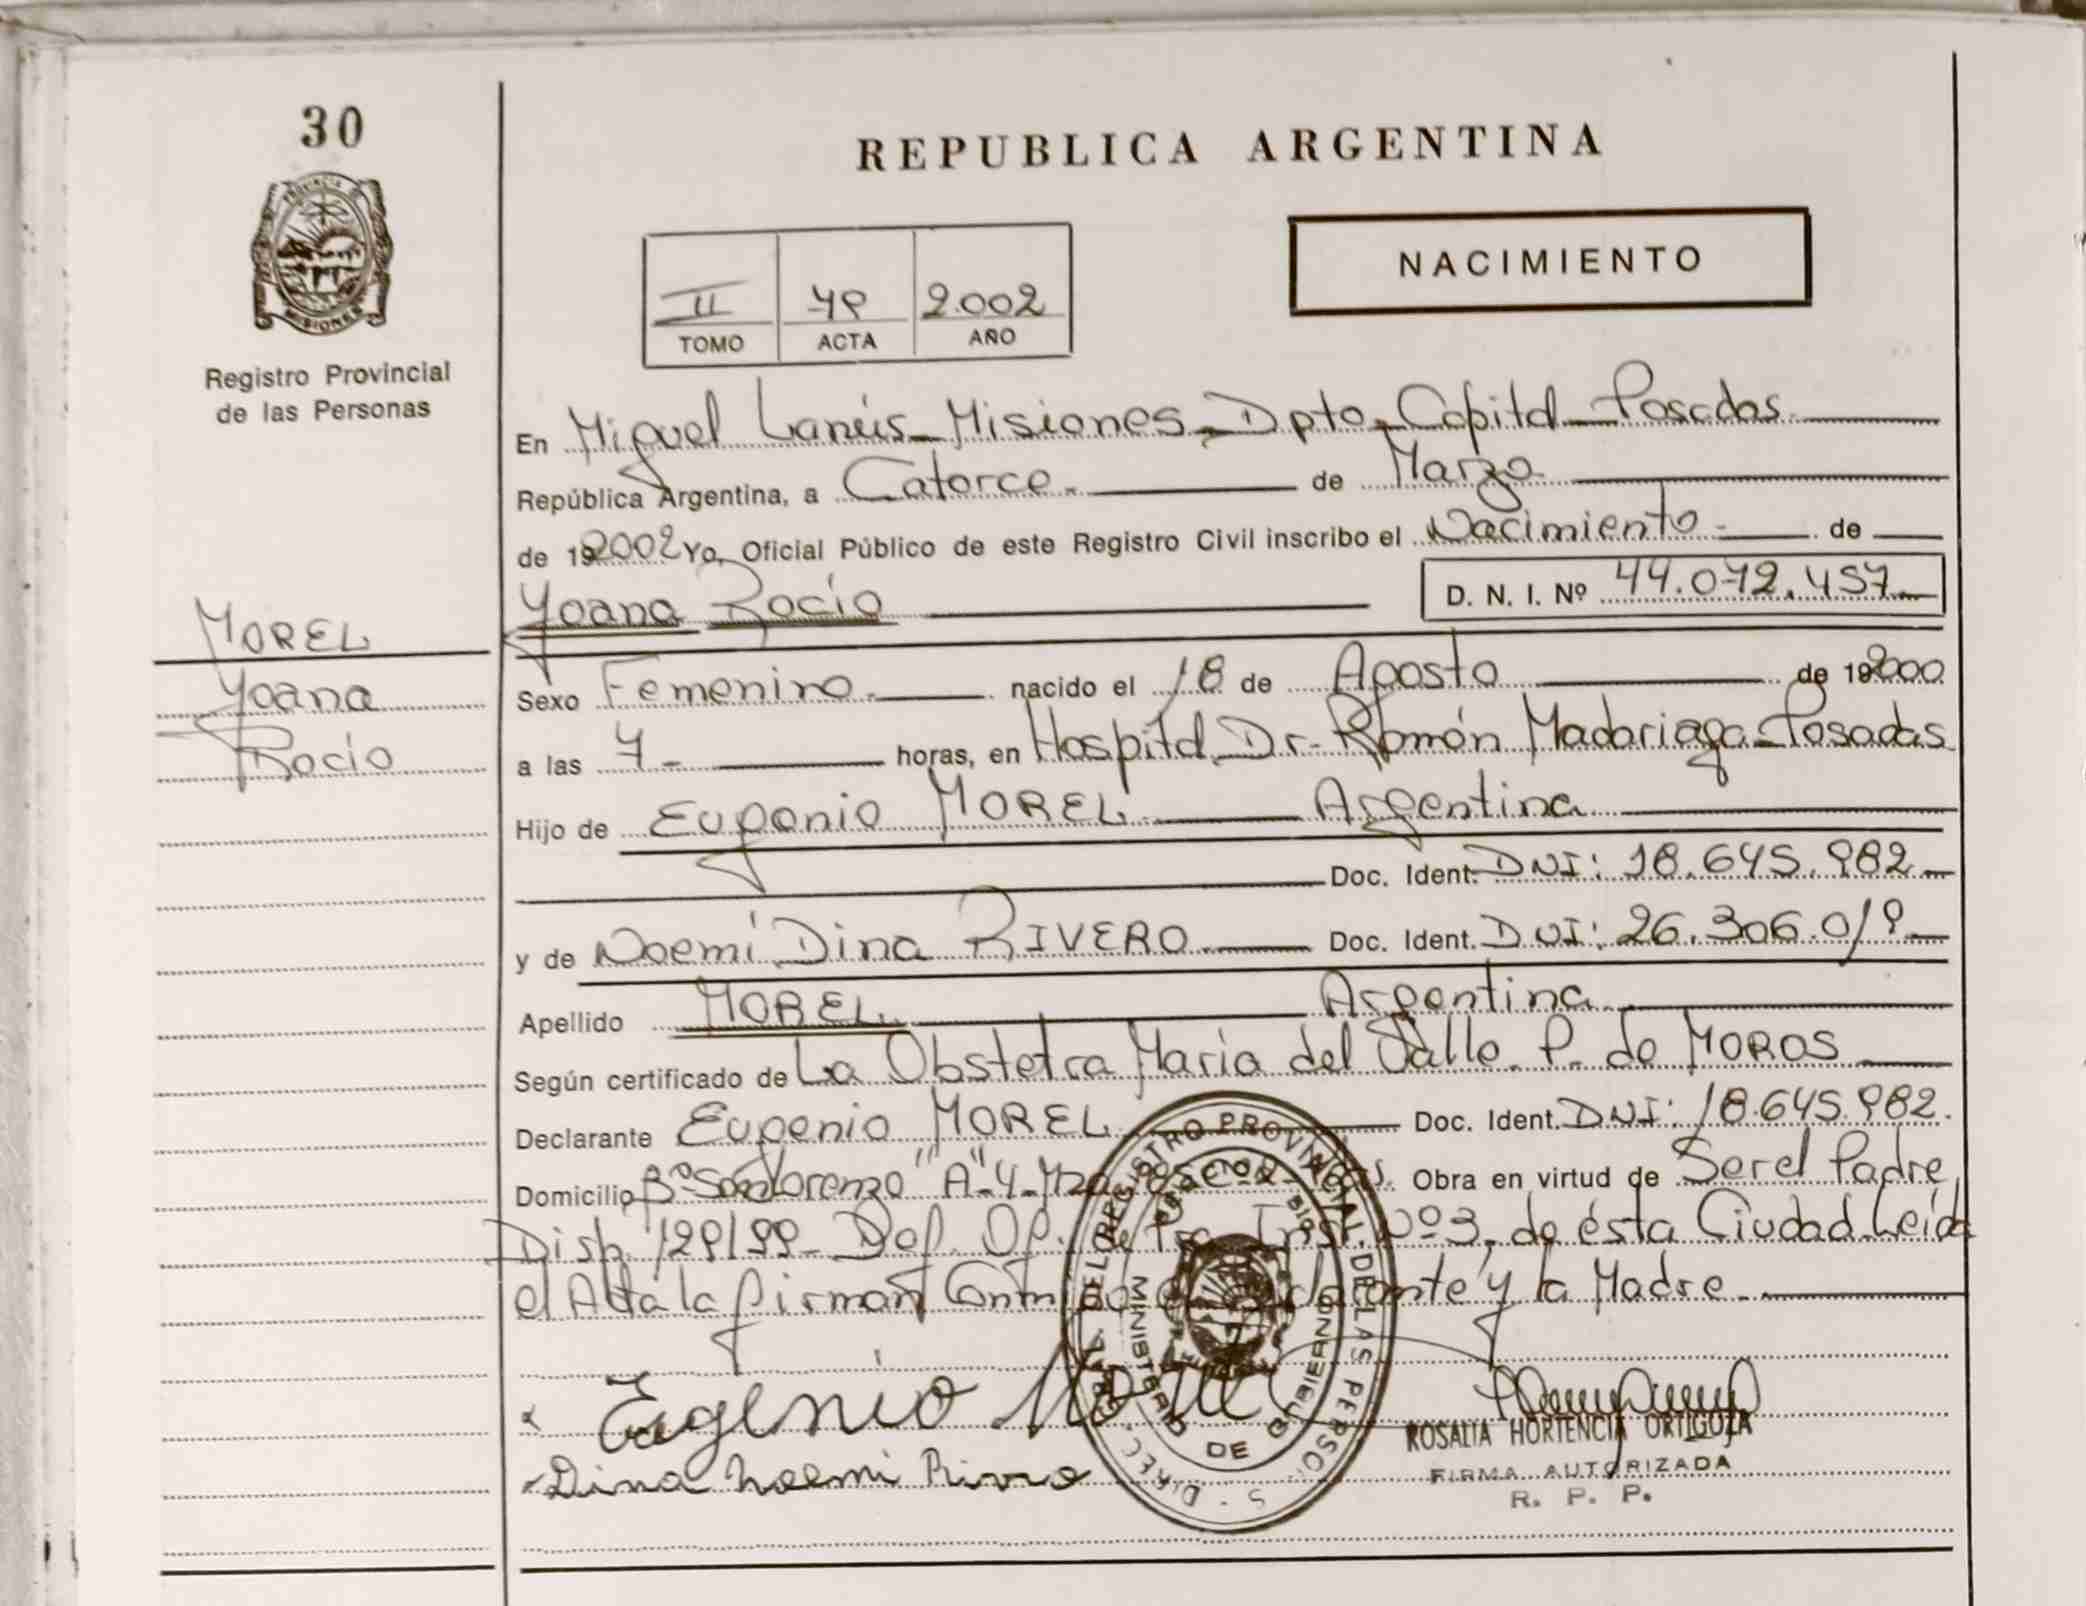 30
REPUBLICA ARGENTINA
PROVINCIA DE
MISIONES
Registro Provincial
de las Personas
II 2.002
TOMO ACTA AÑO
NACIMIENTO
En Miguel Lanús - Misiones - Dpto. Capital - Posadas
República Argentina, a Catorce. de Marzo
de 192002 Yo, Oficial Público de este Registro Civil inscribo el Nacimiento. de
Yoana Rocío D. N. I. Nº 44.072.457
MOREL
Yoana
Rocío
Sexo Femenino. nacido el 18 de Agosto de 192000
a las 7 - horas, en Hospital Dr. Ramón Madariaga - Posadas
Hijo de Eugenio MOREL Argentina
Doc. Ident. DNI: 18.645.982
y de Noemí Dina RIVERO Doc. Ident. DNI: 26.306.019
Apellido MOREL Argentina
Según certificado de La Obstetra María del Valle P. de MOROS
Declarante Eugenio MOREL Doc. Ident. DNI: 18.645.982.
Domicilio Bº San Lorenzo "A"-4- Obra en virtud de Ser el Padre
Disp. 129/99 - Def. Of. de Inst. Nº 3, de ésta Ciudad. Leída
el Acta la firman el declarante y la Madre
Eugenio Morel
Dina Noemi Rivero
REGISTRO PROVINCIAL DE LAS PERSONAS
MINISTERIO DE GOBIERNO
ROSALIA HORTENCIA ORTIGOZA
FIRMA AUTORIZADA
R. P. P.